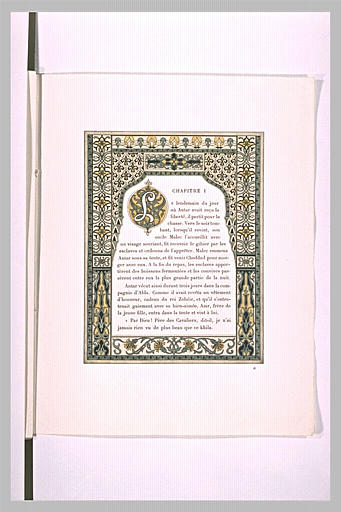 CHAPITRE I
Le lendemain du jour
où Antar avait reçu la
liberté, il partit pour la
chasse. Vers le soir tom-
bant, lorsqu'il revint, son
oncle Malec l'accueillit avec
un visage souriant, fit recevoir le gibier par les
esclaves et ordonna de l'apprêter. Malec emmena
Antar sous sa tente, et fit venir Cheddad pour man-
ger avec eux. A la fin du repas, les esclaves appor-
tèrent des boissons fermentées et les convives pas-
sèrent entre eux la plus grande partie de la nuit.
Antar vécut ainsi durant trois jours dans la com-
pagnie d'Abla. Comme il avait revêtu un vêtement
d'honneur, cadeau du roi Zohéir, et qu'il s'entre-
tenait gaiement avec sa bien-aimée, Amr, frère de
la jeune fille, entra dans la tente et vint à lui.
« Par Dieu ! Père des Cavaliers, dit-il, je n'ai
jamais rien vu de plus beau que ce khila.